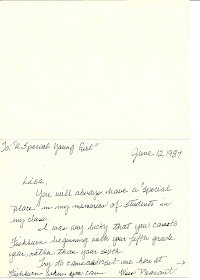 To: "A Special Young Girl"
June 12, 1987
Lisa,
You will always have a "special
place" in my memories of students in
my class.
I was very lucky that you came to
Fishburn beginning with your fifth grade
year, rather than your sixth.
Try to come and visit me here at
Fishburn when you can. Miss